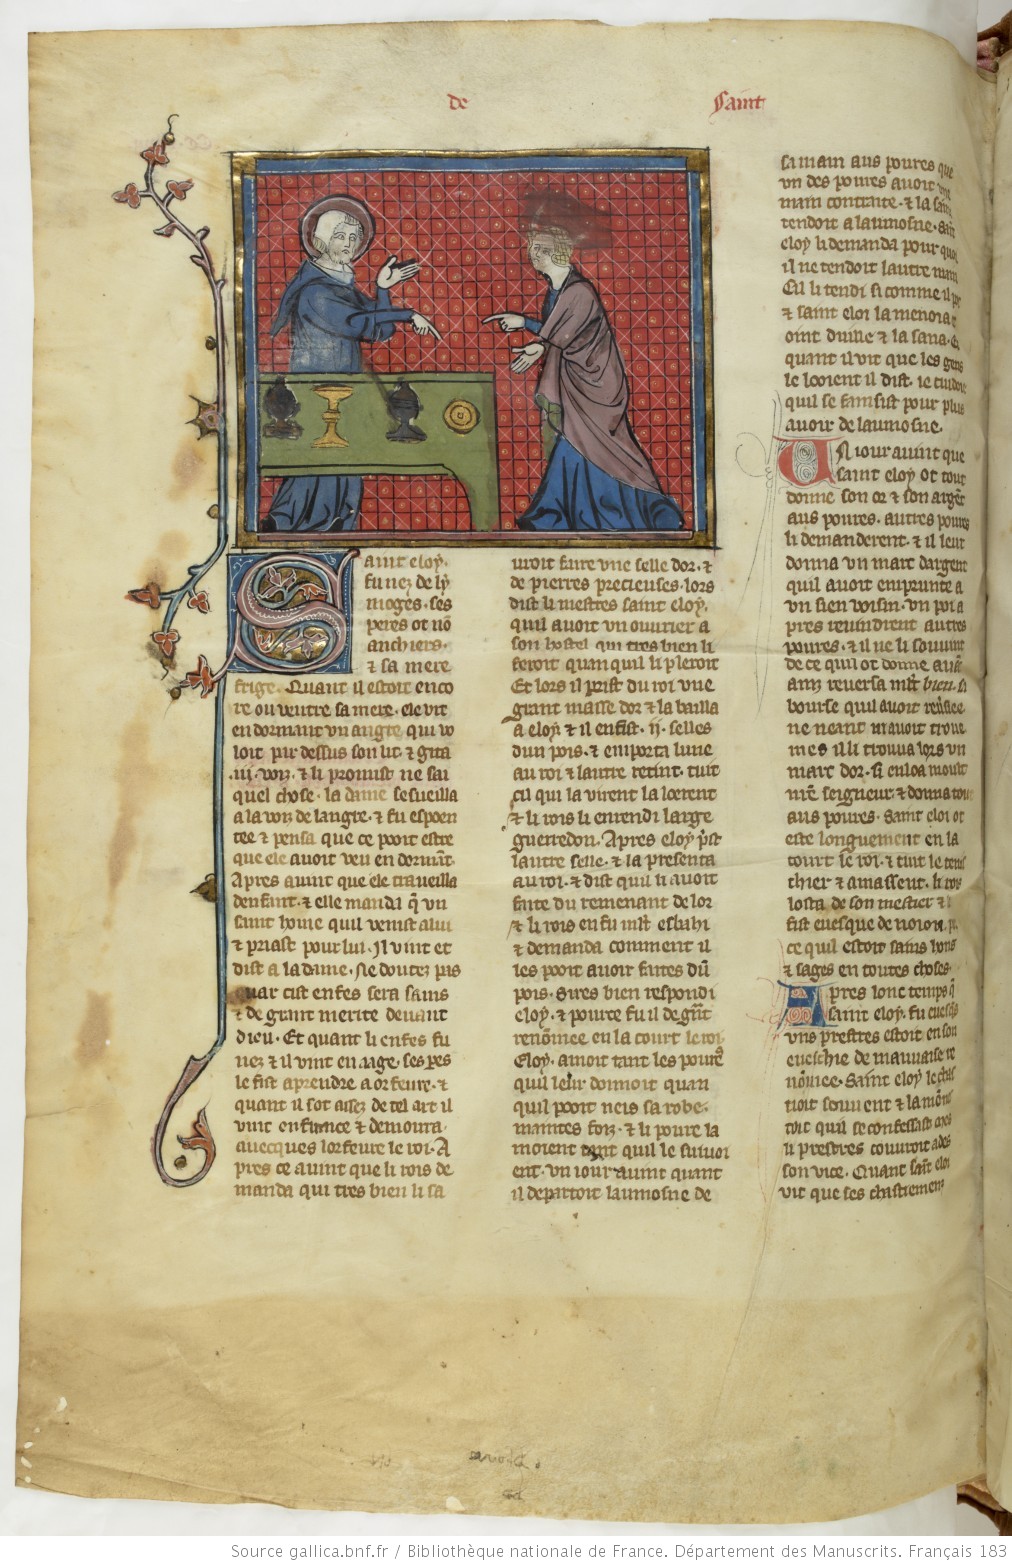 de Saint
aint eloy.
fu nez de ly
moges. ses
peres ot nō
anchiers.
& sa mere
frige. Quant il estoit enco
re ou ventre sa mere. ele vit
en dormant vn angle qui vo
loit par dessus son lit. & gita
.iij. voiz. & li promist ne sai
quel chose. la dame sesueilla
a la voiz de langle. & fu espoen
tee & pensa que ce poont estre
que ele auoit veu en dormāt.
Apres auint que ele traueilla
denfant. & elle manda q̄ vn
saint home quil venist a lui
& priast pour lui. Il vint et
dist a la dame. Ne doutez pas
quar cist enfes sera sains
& de grant merite deuant
dieu. Et quant li enfes fu
nez & il vint en aage. ses peres
le fist aprendre a orfeure. &
quant il sot assez de tel art il
vint en france & demoura
auecques lorfeure le roi. A
pres ce auint que li rois de
manda qui tres bien li sa
uroit faire vne selle dor. &
de pierres precieuses. lors
dist li mestres saint eloy.
quil auoit vn ouurier a
son hostel qui tres bien li
feroit quanquil li pleroit
Et lors il prist du roi vne
grant masse dor & la bailla
a eloy & il en fist .ij. selles
dun pois. & emporta lune
au roi & lautre retint. tuit
cil qui la virent la loerent
& li rois li en rendi large
guerredon. Apres eloy prist
lautre selle. & la presenta
au roi. & dist quil li auoit
faite du remenant de lor
& li rois en fu mlt esbahi
& demanda comment il
les pooit auoir faites dū
pois. Sires bien respondi
eloy. & pource fu il de grāt
renōmee en la court le roi.
Eloy. amoit tant les poures
quil leur donnoit quan
quil pooit neis sa robe.
maintes foiz. & li poure la
moient tant quil le suiuoi
ent. vn iour auint quant
il departoit laumosne de
sa main aus poures que
vn des poures auoit vne
main contraite. & la sai
tendoit a laumosne. Saīt
eloy li demanda pour quoi
il ne tendoit lautre main
Cil li tendi si comme il pot
& saint eloi la menoia
oint duille & la sana. Et
quant il vit que les gens
le looient il dist. ie cuidoie
quil se fainsist pour plus
auoir de laumosne.
Un iour auint que
saint eloy ot tout
donne son or & son argēt
aus poures. autres poures
li demanderent. & il leur
donna un marc dargent
quil auoit emprunte a
vn sien voisin. vn poi a
pres reuindrent autres
poures. & il ne li souuint
de ce quil ot donne auāt
ainz reuersa mlt bien. sa
bourse quil auoit
ne neant ni auoit troue
mes il li trouua lors vn
marc dor. Si en loa moult
nr̄e seigneur. & donna tout
aus poures. Saint eloi ot
este longuement en la
court le roi. & tint le
thier & amassent. li rois
losta de son mestier &
fist euesque de noion. p̄
ce quil estoit sains hons
& sages en toutes choses.
Apres lonc temps q̄
saint eloy. fu euesques
vns prestres estoit en son
eueschie de mauuaise re
nōmee. Saint eloy le chas
tioit souuent & lamōnes
toit quil se confessast
li prestres couuroit ades
son vice. Quant saīt eloi
vit que ses chastiemens
Source gallica.bnf.fr / Bibliothèque nationale de France. Département des Manuscrits. Français 183